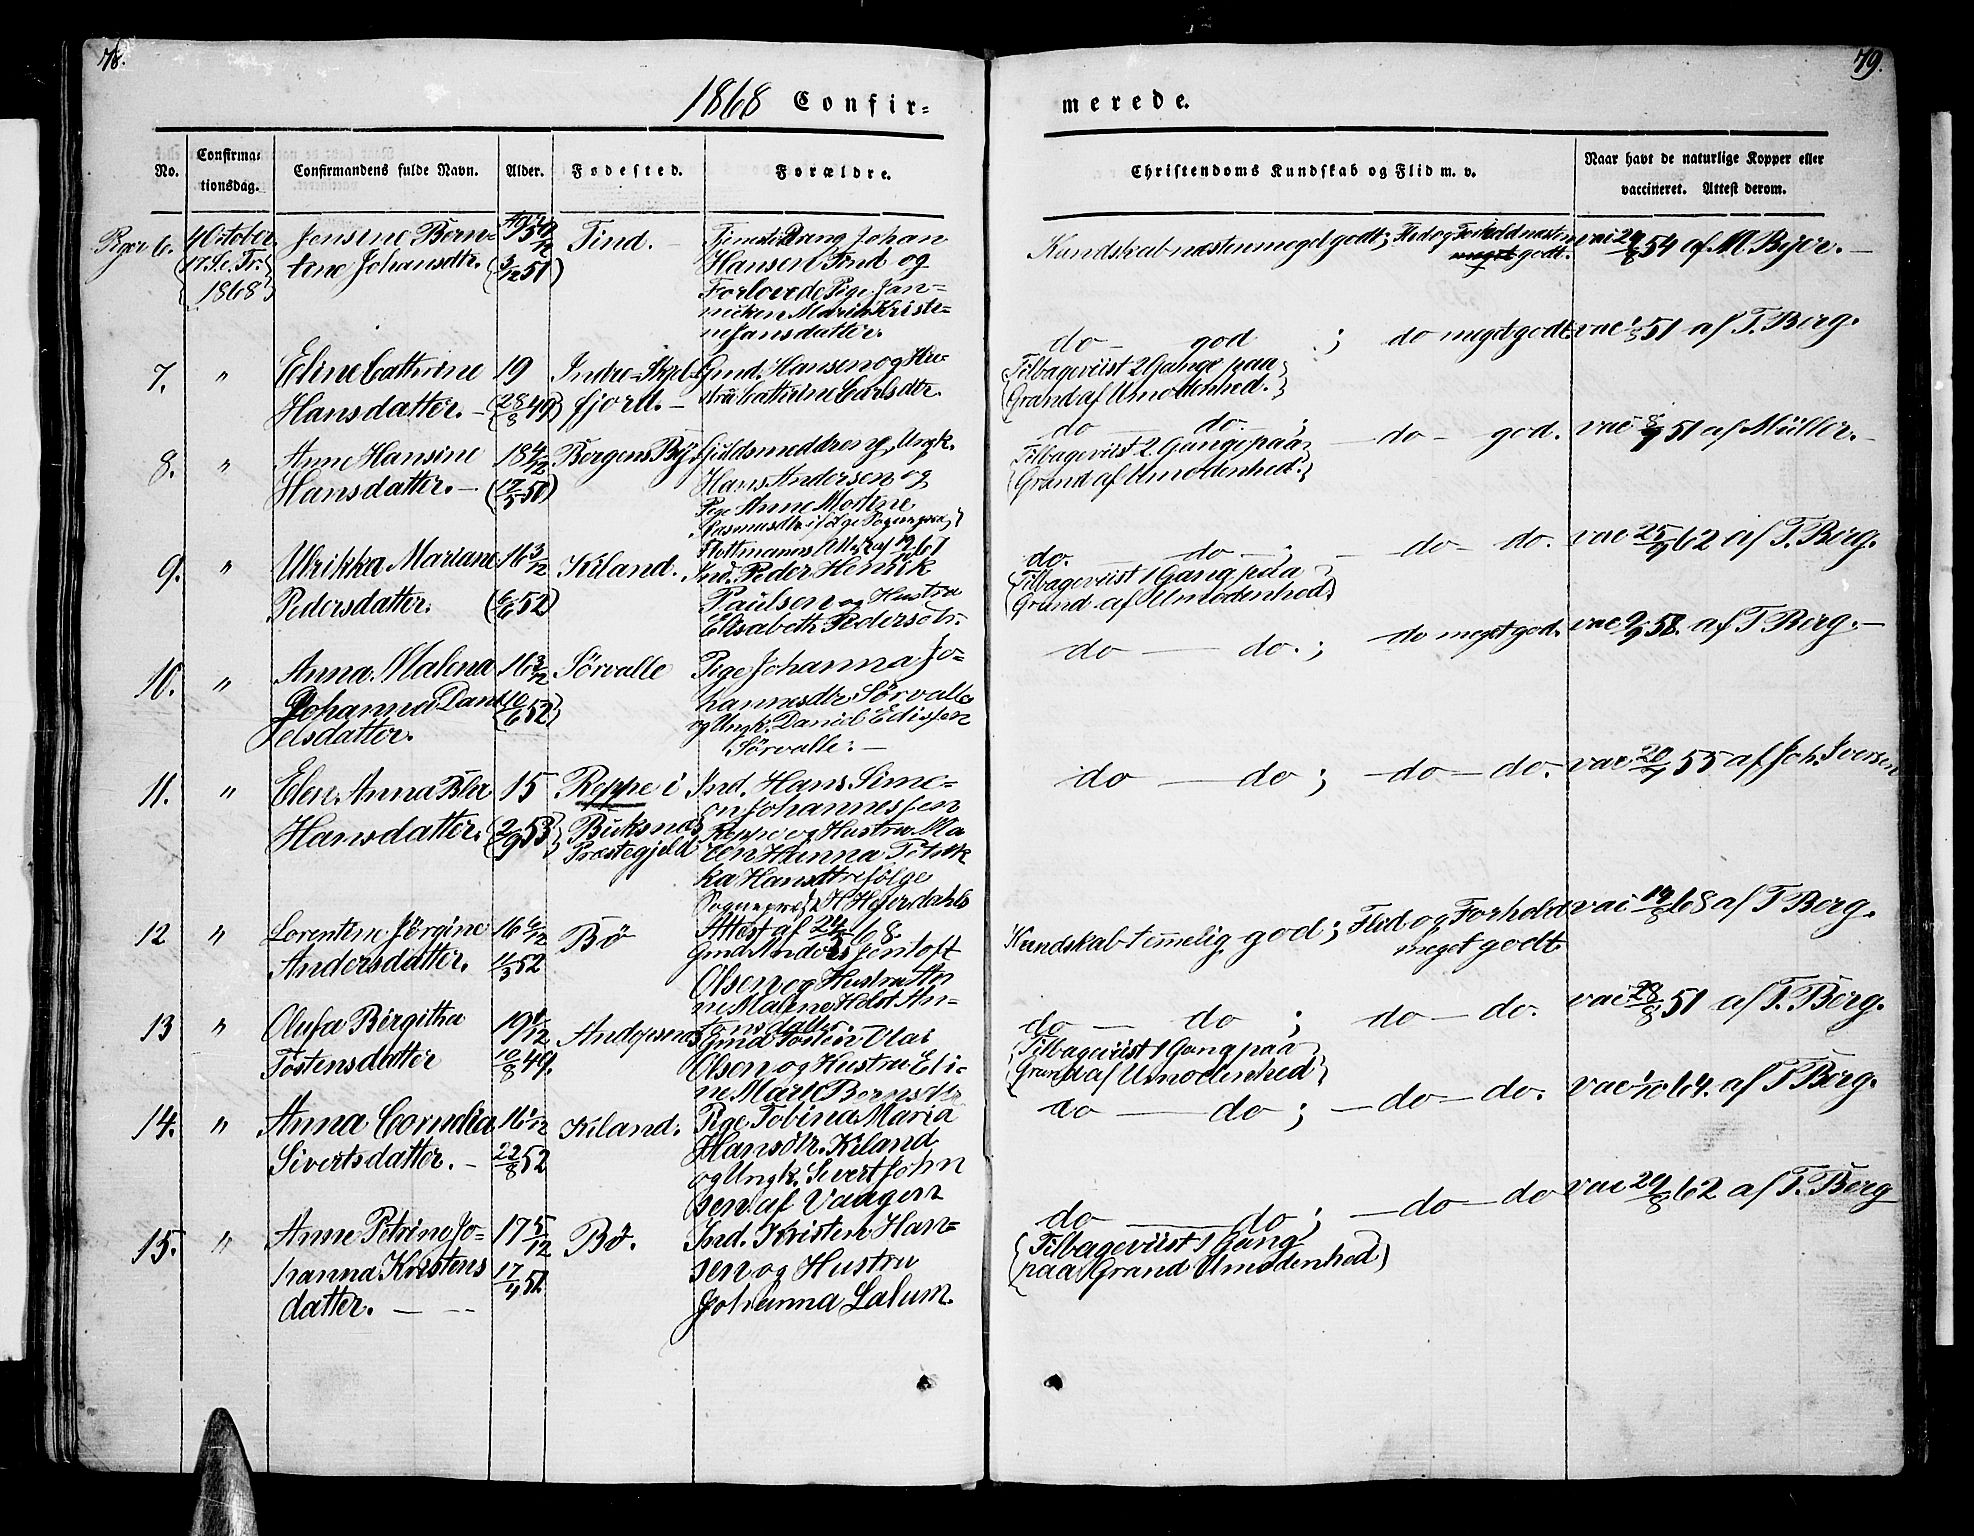 78.
79.
1868 Confir=
merede.
No.
Confirma=
tionsdag.
Confirmandens fulde Navn.
Alder.
Fødested.
Forældre.
Christendoms Kundskab og Flid m. v.
Naar havt de naturlige Kopper eller
vaccineret. Attest derom.
Piger 6.
4 October
17 S. e. Tr.
1868
Jensine Bern=
tine Johansdtr.
(3/12 51)
Tind. -
Tjenestedreng Johan
Hansen Tind og
Forlovede Pige Jan=
nicken Marie Kriste=
ne Jansdatter.
Kundskab næsten meget godt; Flid og Forhold næsten
meget godt.
vac 54 af M. Byer. -
7.
"
Eline Cathrine
Hansdatter. -
19
(28/8 49)
Indre-Skjel-
fjord. -
Gmd. Hansen og Hu-
stru Cathrine Carlsdtr.
do - god ; do meget godt.
Tilbageviist 2 Gange paa
Grund af Umodenhed.
vac 51 af T. Berg.
8.
"
Anne Hansine
Hansdatter. -
18 4/12
(17/5 50)
Bergens By.
Guldsmeddreng, Ungk.
Hans Andersen og
Pige Anne Mortine
Rasmusdtr ifølge Sognepræst
Attest af 19 67
do do. ; - do - god.
Tilbageviist 2 Gange paa
Grund af Umodenhed.
vac 8/9 51 af Müller. -
9.
"
Ulrikka Mariane
Pedersdatter.
16 3/12
(6/6 52)
Kiland.
Ind. Peder Henrik
Paulsen og Hustru
Elisabeth Pedersdtr.
do. - do - ; - do - do.
Tilbageviist 1 Gang paa
Grund af Umodenhed
vac 25/9 62 af T. Berg.
10.
"
Anna Malena
Johanna Dani
elsdatter.
16 3/12
(10/6 52)
Sørvalle
Pige Johanna Jo=
hannesdtr. Sørvalle
og Ungk. Daniel Edissen
Sørvalle. -
do - do. ; do meget god.
vac 2/9 58 af T Berg. -
11.
"
Elen Anna
Hansdatter.
15
(2/9 53)
Reppe i
Buksnæs
Præstegjeld
Ind. Hans Sime=
on Johannessen
Reppe og Hustru Ma
ren Hanna Petrik
ka Hansdtr efølge
Sognepræst H. Heierdahls
Attest af 24 68.
do - do ; - do - do.
vac 20 55 af Joh. Iversen
12
"
Lorentine Jørgine
Andersdatter.
16 6/12
11/3 52
Bø
Gmd Anders Gentoft
Olsen og Hustru An
ne Malene Holst An=
tonsdatter.
Kundskab temmelig god; Flid og Forhold
meget godt
vac 19/8 68 af T Berg.
13
"
Olufa Birgitha
Tostensdatter
19 1/12
10/8 49.
Andopsnes
Gmd Tosten Olai
Olsen og Hustru Eli=
ne Marie Bernsdtr
do - do ; do - do.
Tilbageviist 1 Gang paa
Grund af Umodenhed
vac 28/8 51 af T. Berg.
14.
"
Anna Cornelia
Sivertsdatter. -
16 1/12
22/8 52
Kiland.
Pige Tobina Maria
Hansdtr. Kiland
og Ungk. Sivert John
sen af Vaagen
do - do ; - do - do.
vac 64. af T Berg.
15.
"
Anne Petrine Jo=
hanna Kristens
datter. - --
17 5/12
17/4 51
Bø.
Ind. Kristen Han=
sen og Hustru
Johanna Larum.
do - do ; - do - do
Tilbageviist 1 Gang
paa Grund Umodenhed
vac 29/8 62 af T. Berg